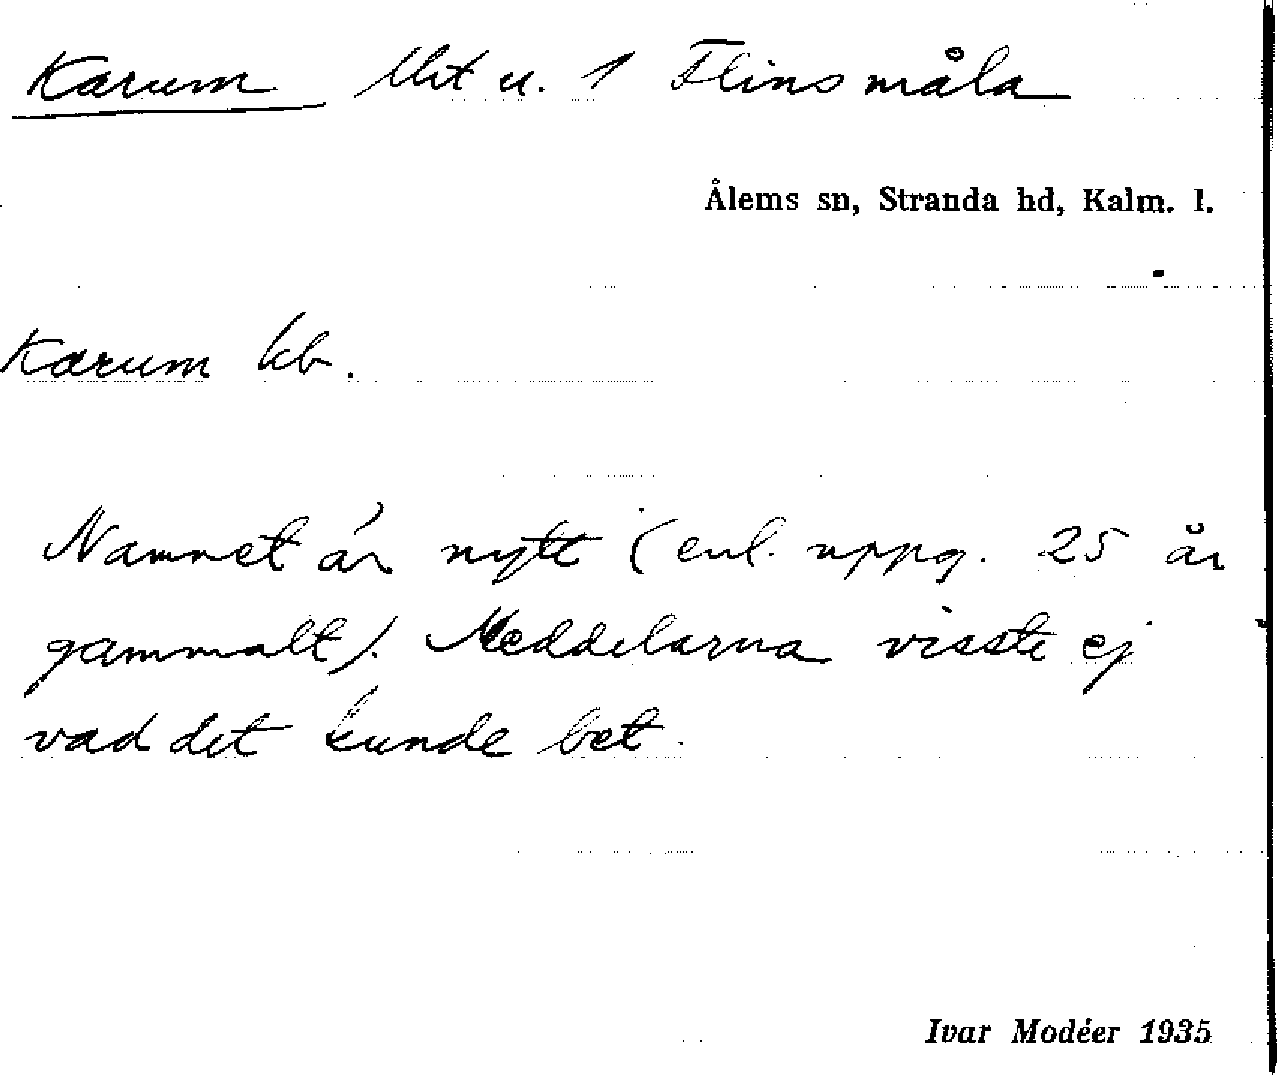 Karum lht u. 1 Flinsmåla
Ålems sn, Stranda hd, Kalm. l.
Karum kb.
Namnet är nytt (enl. uppg. 25 år
gammalt). Meddelarna visste ej
vad det kunde bet.
Ivar Modéer 1935